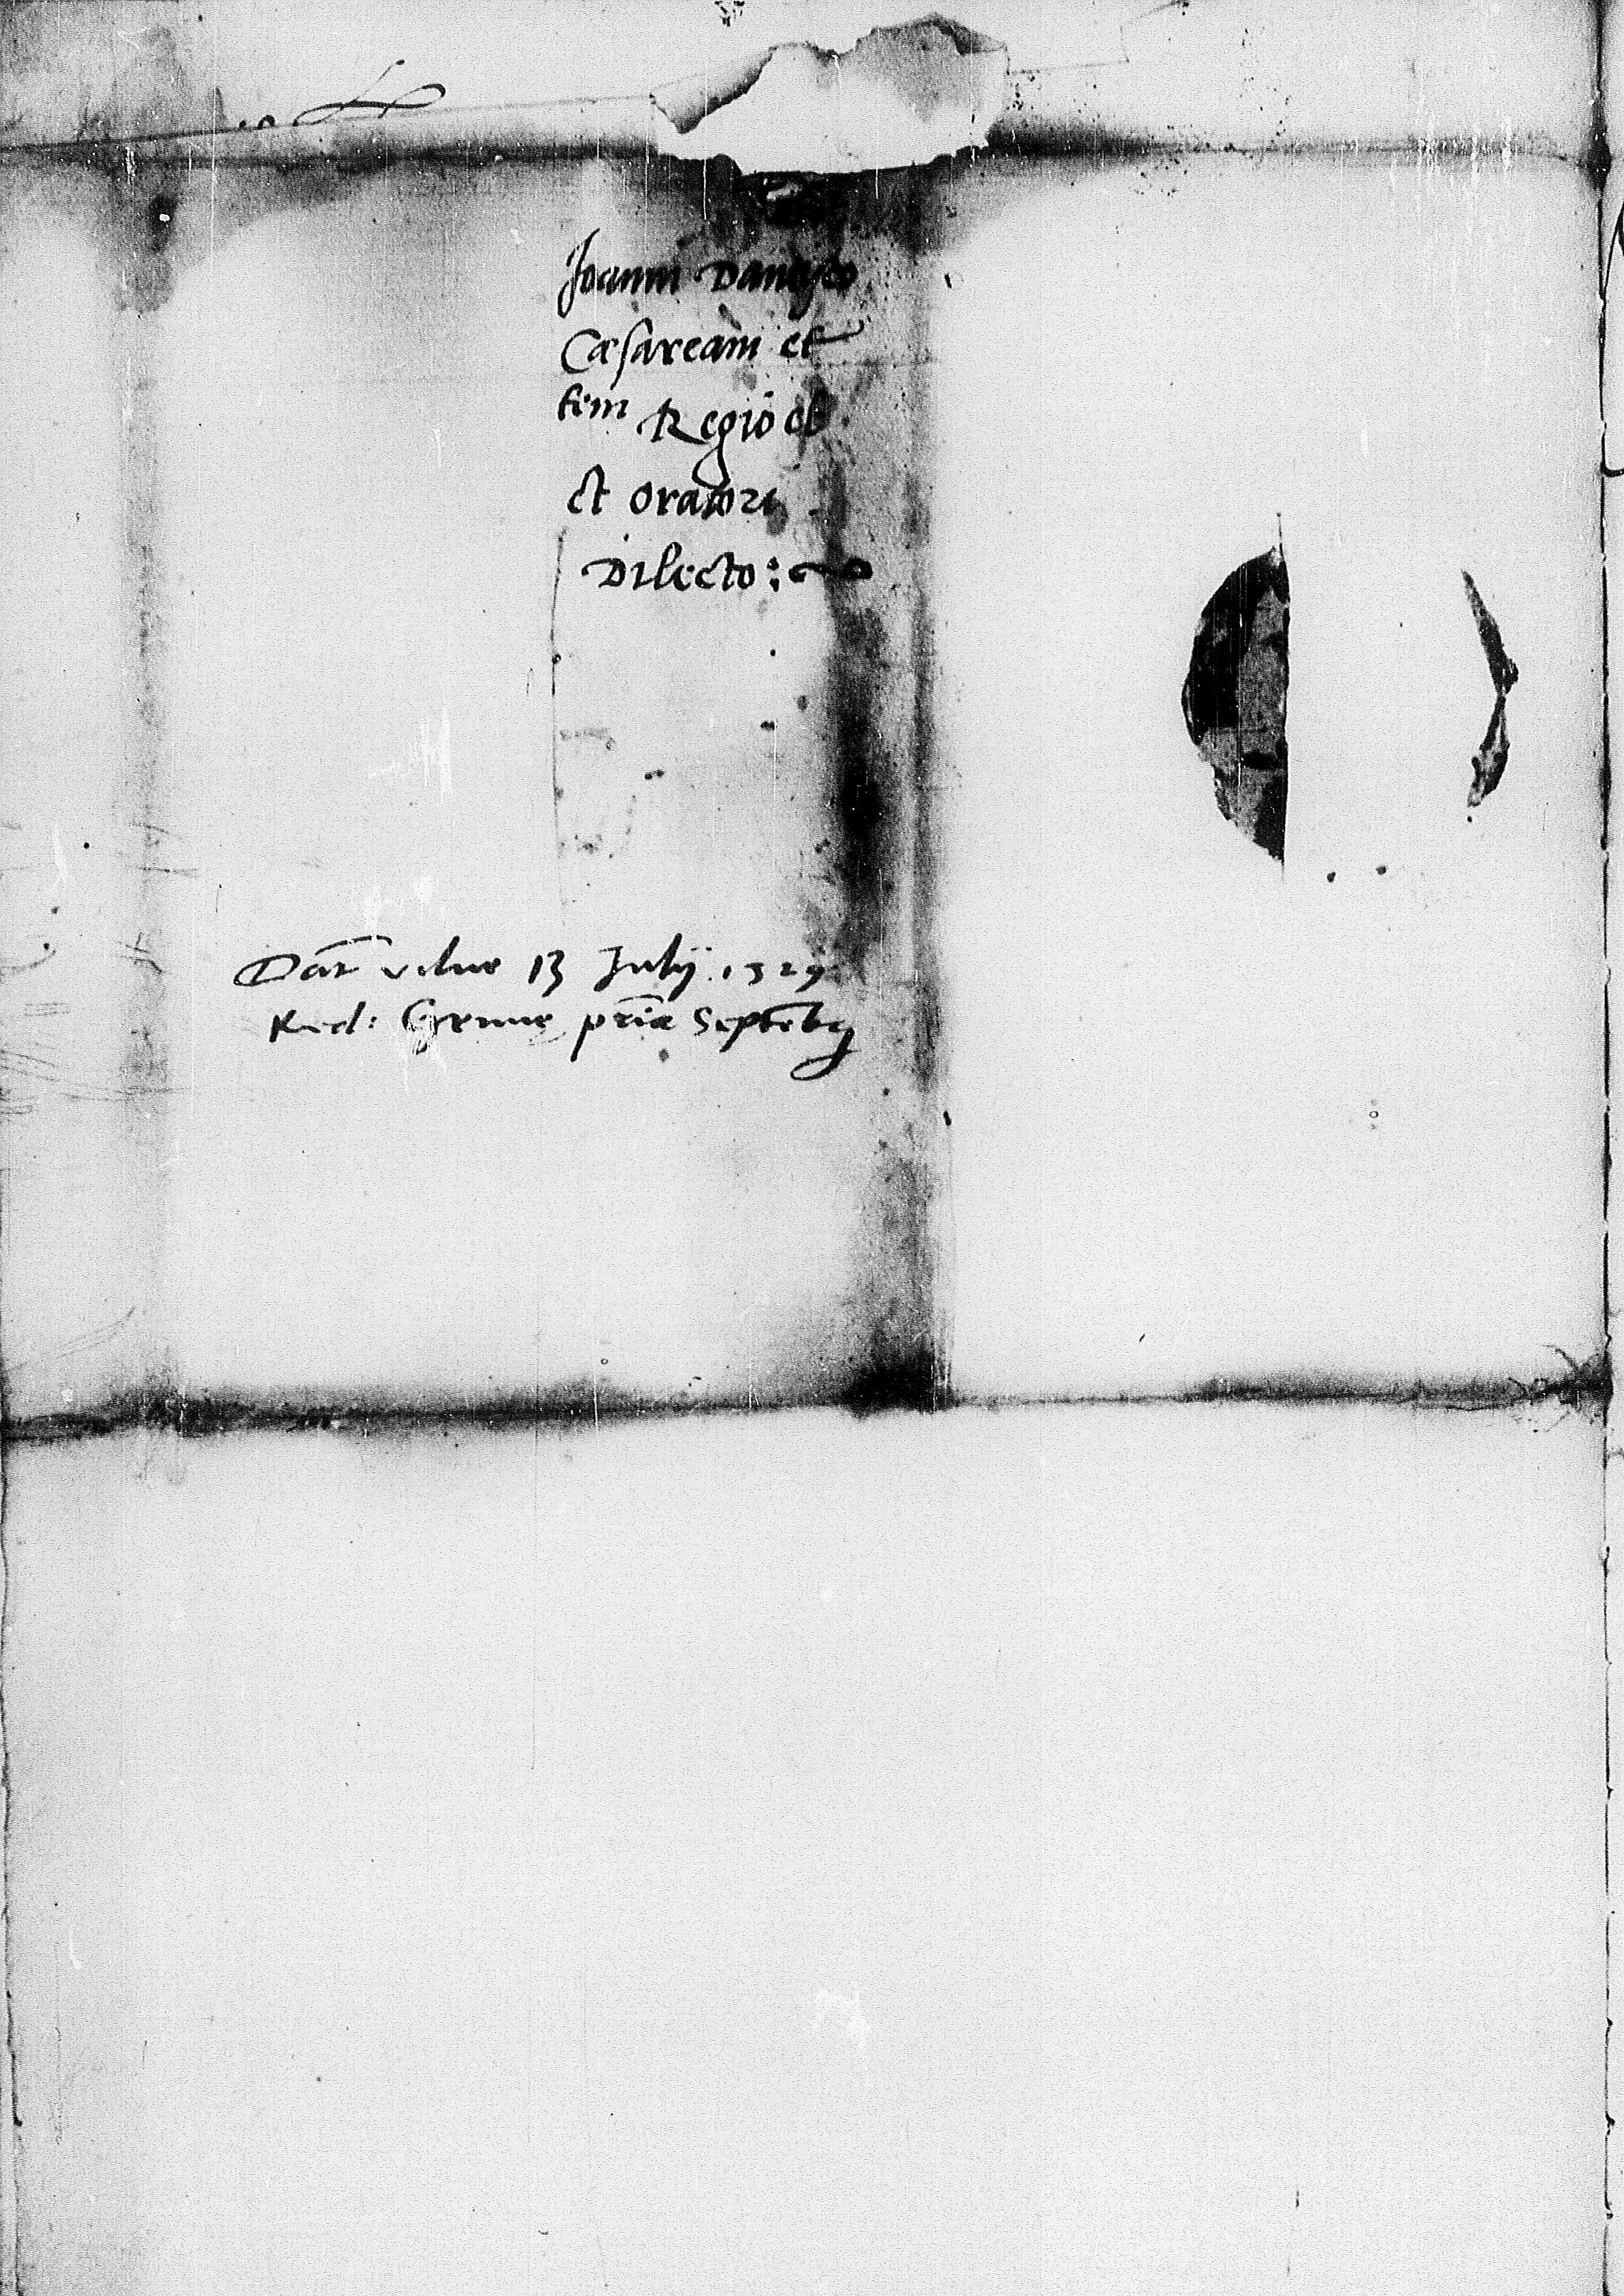 Joanni Dantisco
Cæsaream et
tem Regio et
et Oratori
Dilecto:
Dat Vilne 13 Julij 1529
Red: Genue prīa Septēbrꝫ